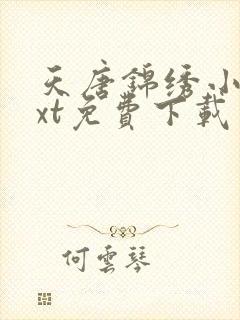 天唐錦绣小
xt免費下載
何雲琴